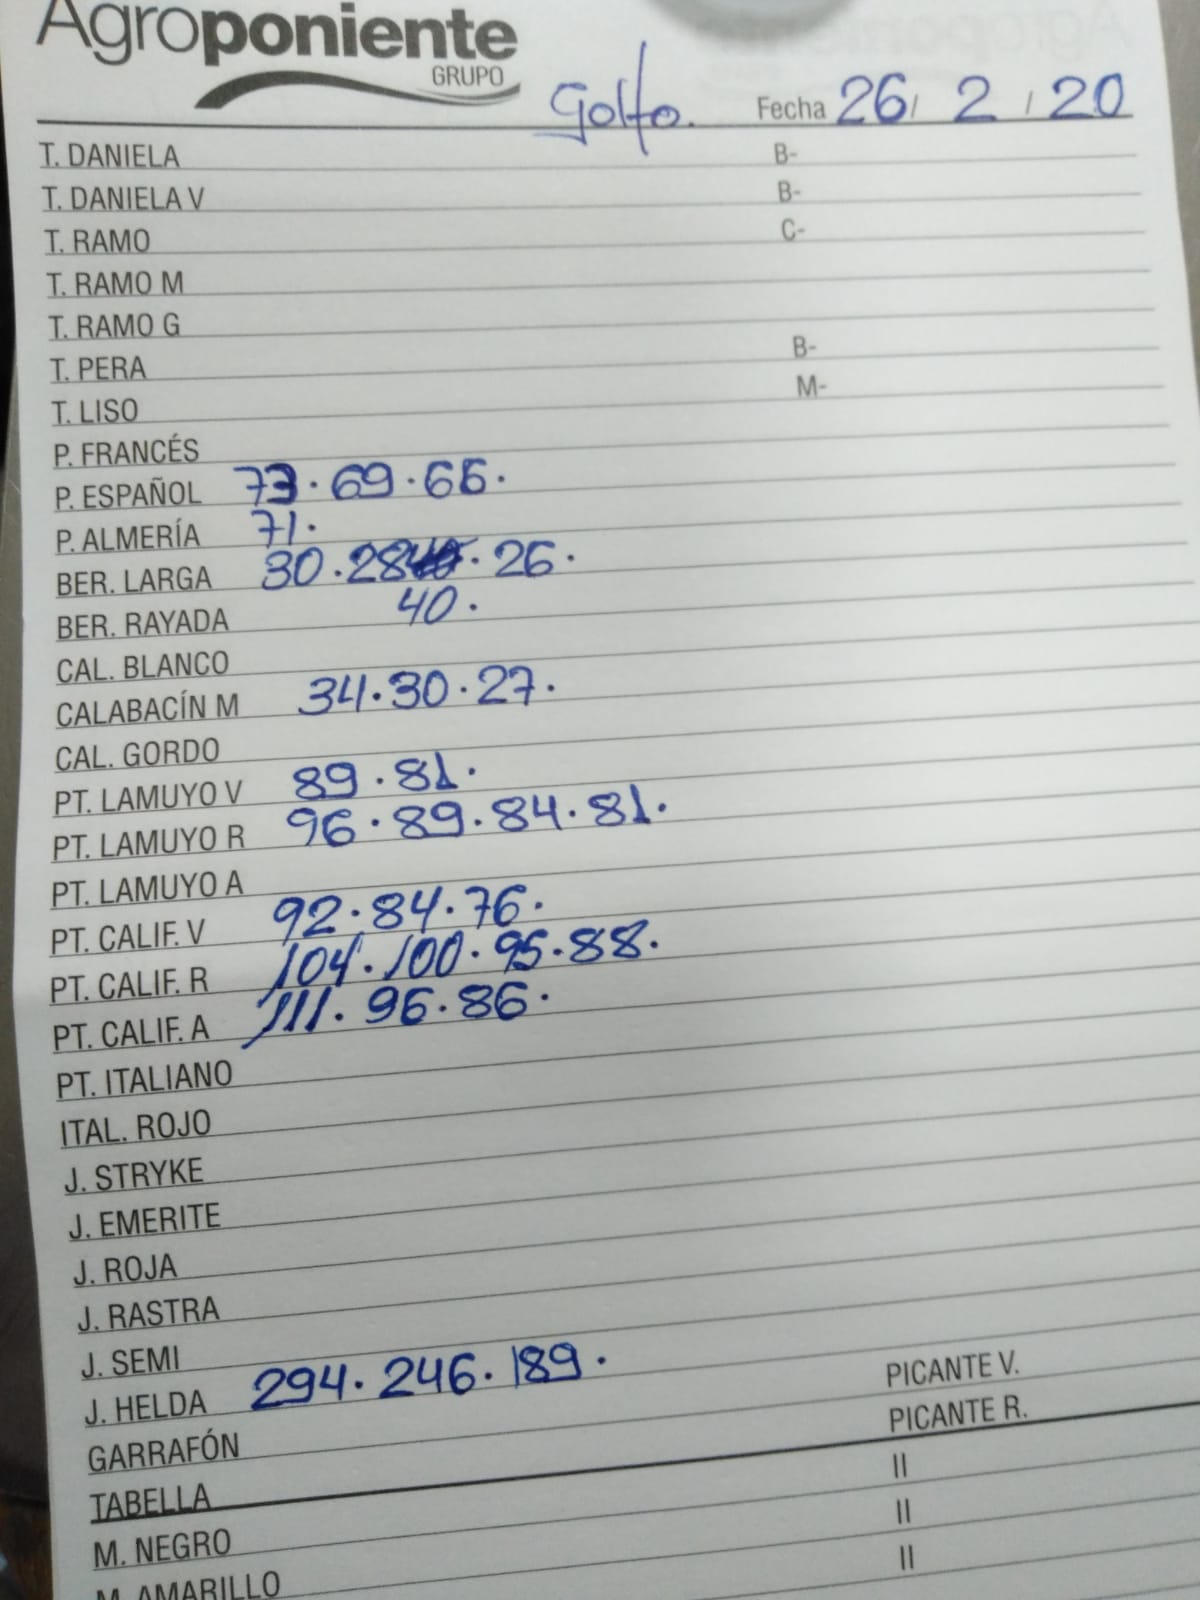 Agroponiente
GRUPO
Golfo. Fecha 26/ 2 / 20
T. DANIELA B-
T. DANIELA V B-
T. RAMO C-
T. RAMO M
T. RAMO G
T. PERA B-
T. LISO M-
P. FRANCÉS
P. ESPAÑOL 73.69.66.
P. ALMERÍA 71.
BER. LARGA 30.28.26.
BER. RAYADA 40.
CAL. BLANCO
CALABACÍN M 34.30.27.
CAL. GORDO
PT. LAMUYO V 89.81.
PT. LAMUYO R 96.89.84.81.
PT. LAMUYO A
PT. CALIF. V 92.84.76.
PT. CALIF. R 104.100.95.88.
PT. CALIF. A 111.96.86.
PT. ITALIANO
ITAL. ROJO
J. STRYKE
J. EMERITE
J. ROJA
J. RASTRA
J. SEMI
J. HELDA 294.246.189.
GARRAFÓN PICANTE V.
TABELLA PICANTE R.
M. NEGRO II
M. AMARILLO II
II